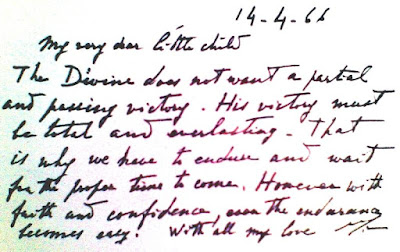 14-4-66
My very dear little child
The Divine does not want a partial
and passing victory. His victory must
be total and everlasting - That
is why we have to endure and wait
for the proper time to come. However with
faith and confidence, even the endurance
becomes easy. With all my love